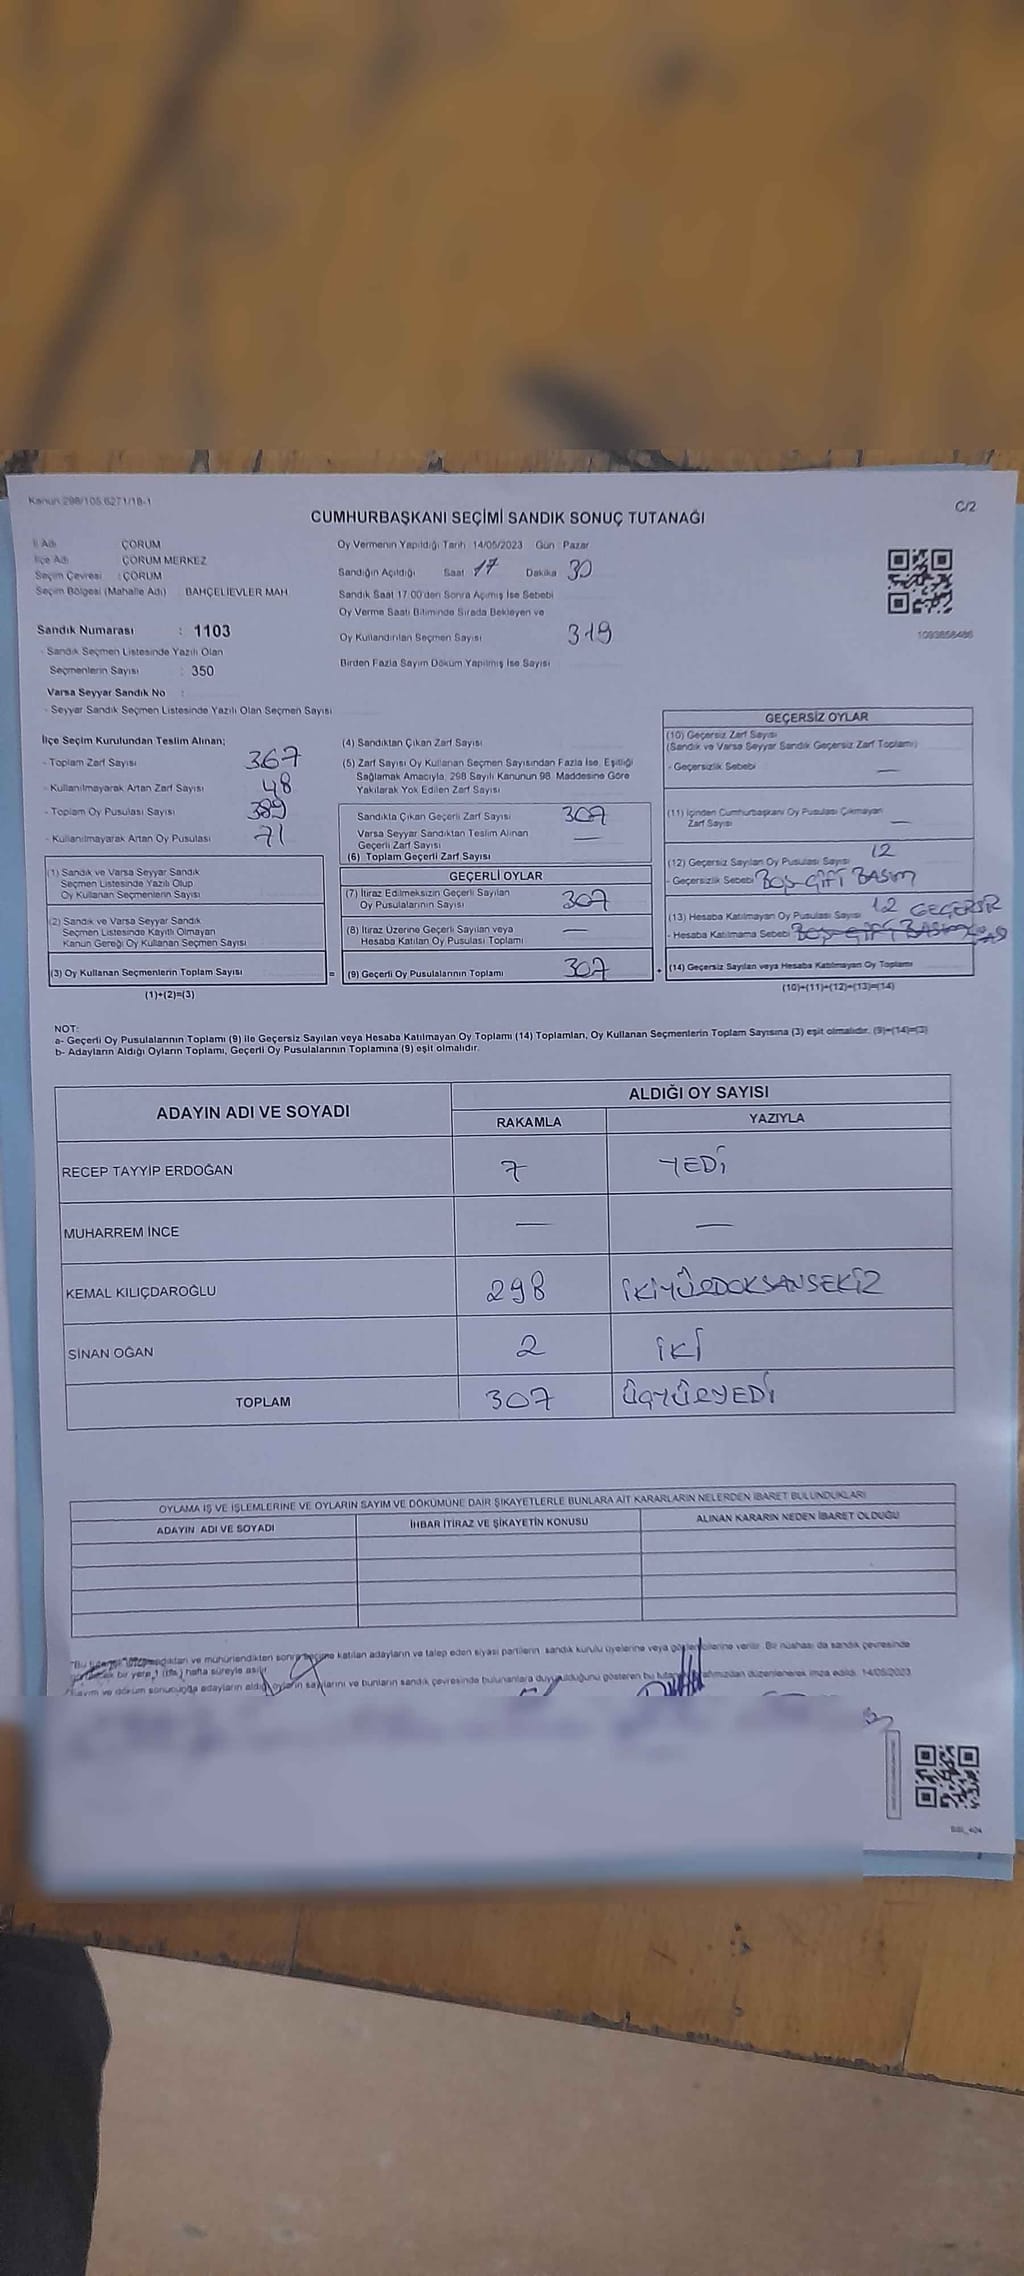 Kanun 298/105 6271/18-1
C/2
CUMHURBAŞKANI SEÇİMİ SANDIK SONUÇ TUTANAĞI
İl Adı ÇORUM
İlçe Adı ÇORUM MERKEZ
Seçim Çevresi : ÇORUM
Seçim Bölgesi (Mahalle Adı) BAHÇELİEVLER MAH.
Sandık Numarası : 1103
- Sandık Seçmen Listesinde Yazılı Olan
Seçmenlerin Sayısı : 350
Varsa Seyyar Sandık No :
- Seyyar Sandık Seçmen Listesinde Yazılı Olan Seçmen Sayısı
Oy Vermenin Yapıldığı Tarih 14/05/2023 Gün Pazar
Sandığın Açıldığı Saat 17 Dakika 30
Sandık Saat 17:00'den Sonra Açımış İse Sebebi
Oy Verme Saati Bitiminde Sırada Bekleyen ve
Oy Kullandırılan Seçmen Sayısı 319
Birden Fazla Sayım Döküm Yapılmış İse Sayısı
1093858486
İlçe Seçim Kurulundan Teslim Alınan;
- Toplam Zarf Sayısı 367
- Kullanılmayarak Artan Zarf Sayısı 48
- Toplam Oy Pusulası Sayısı 389
- Kullanılmayarak Artan Oy Pusulası 71
(1) Sandık ve Varsa Seyyar Sandık
Seçmen Listesinde Yazılı Olup
Oy Kullanan Seçmenlerin Sayısı
(2) Sandık ve Varsa Seyyar Sandık
Seçmen Listesinde Kayıtlı Olmayan
Kanun Gereği Oy Kullanan Seçmen Sayısı
(3) Oy Kullanan Seçmenlerin Toplam Sayısı
(1)+(2)=(3)
=
(4) Sandıktan Çıkan Zarf Sayısı
(5) Zarf Sayısı Oy Kullanan Seçmen Sayısından Fazla İse, Eşitliği
Sağlamak Amacıyla, 298 Sayılı Kanunun 98. Maddesine Göre
Yakılarak Yok Edilen Zarf Sayısı
Sandıkta Çıkan Geçerli Zarf Sayısı 307
Varsa Seyyar Sandıktan Teslim Alınan
Geçerli Zarf Sayısı —
(6) Toplam Geçerli Zarf Sayısı
GEÇERLİ OYLAR
(7) İtiraz Edilmeksizin Geçerli Sayılan
Oy Pusulalarının Sayısı 307
(8) İtiraz Üzerine Geçerli Sayılan veya
Hesaba Katılan Oy Pusulası Toplamı —
(9) Geçerli Oy Pusulalarının Toplamı 307
+
GEÇERSİZ OYLAR
(10) Geçersiz Zarf Sayısı
(Sandık ve Varsa Seyyar Sandık Geçersiz Zarf Toplamı)
- Geçersizlik Sebebi —
(11) İçinden Cumhurbaşkanı Oy Pusulası Çıkmayan
Zarf Sayısı —
(12) Geçersiz Sayılan Oy Pusulası Sayısı 12
- Geçersizlik Sebebi BOŞ-ÇİFT BASIM
(13) Hesaba Katılmayan Oy Pusulası Sayısı 12 GEÇERSİZ
- Hesaba Katılmama Sebebi
(14) Geçersiz Sayılan veya Hesaba Katılmayan Oy Toplamı
(10)+(11)+(12)+(13)=(14)
NOT:
a- Geçerli Oy Pusulasının Toplamı (9) ile Geçersiz Sayılan veya Hesaba Katılmayan Oy Toplamı (14) Toplamları, Oy Kullanan Seçmenlerin Toplam Sayısına (3) eşit olmalıdır. (9)+(14)=(3)
b- Adayların Aldığı Oyların Toplamı, Geçerli Oy Pusulalarının Toplamına (9) eşit olmalıdır.
ADAYIN ADI VE SOYADI
ALDIĞI OY SAYISI
RAKAMLA YAZIYLA
RECEP TAYYİP ERDOĞAN 7 YEDİ
MUHARREM İNCE — —
KEMAL KILIÇDAROĞLU 298 İKİYÜZDOKSANSEKİZ
SİNAN OĞAN 2 İKİ
TOPLAM 307 ÜÇYÜZYEDİ
OYLAMA İŞ VE İŞLEMLERİNE VE OYLARIN SAYIM VE DÖKÜMÜNE DAİR ŞİKAYETLERLE BUNLARA AİT KARARLARIN NELERDEN İBARET BULUNDUKLARI
ADAYIN ADI VE SOYADI İHBAR İTİRAZ VE ŞİKAYETİN KONUSU ALINAN KARARIN NEDEN İBARET OLDUĞU
"Bu ve mühürlendikten sonra seçime katılan adayların ve talep eden siyasi partilerin sandık kurulu üyelerine veya gözlemcilerine verilir. Bir nüshası da sandık çevresinde
bir yere 1 (Bir) hafta süreyle asılır.
Sayım ve döküm sonucunda adayların aldığı oyların sayılarını ve bunların sandık çevresinde bulunanlara duyurulduğunu gösteren bu tutanak tarafımızdan düzenlenerek imza edildi. 14/05/2023